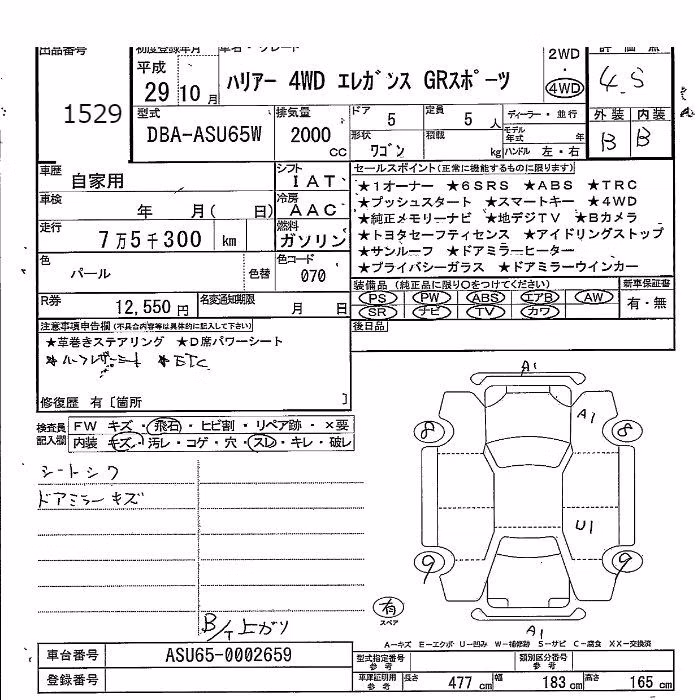 出品番号
1529
初度登録年月
平成
29 10 月
車名・グレード
ハリアー 4WD エレガンス GRスポーツ
2WD
・
4WD
評価点
4.5
外装 内装
B B
型式
DBA-ASU65W
排気量
2000
cc
ドア
5
定員
5 人
ディーラー・並行
形状
ワゴン
積載
kg
モデル年式 年
ハンドル 左・右
車歴
自家用
シフト
IAT
車検
年 月( 日)
冷房
AAC
走行
7万5千300 km
燃料
ガソリン
色
パール
色替
色コード
070
R券
12,550円
名変通知期限
月 日
セールスポイント(正常に機能するものに限ります)
★1オーナー ★6SRS ★ABS ★TRC
★プッシュスタート ★スマートキー ★4WD
★純正メモリーナビ ★地デジTV ★Bカメラ
★トヨタセーフティセンス ★アイドリングストップ
★サンルーフ ★ドアミラーヒーター
★プライバシーガラス ★ドアミラーウインカー
装備品 (純正品に限り○をつけてください)
PS PW ABS エアB AW
SR ナビ TV カワ
新車保証書
有・無
後日品
注意事項申告欄(不具合内容等は具体的に記入して下さい)
★革巻きステアリング ★D席パワーシート
★ハーフレザーシート ★ETC
修復歴 有〔箇所 〕
検査員記入欄
FW キズ・飛石・ヒビ割・リペア跡・×要
内装 キズ・汚レ・コゲ・穴・スレ・キレ・破レ
シートシワ
ドアミラーキズ
B/T上ガリ
A1
A1
8 8
U1
9 9
A1
有
スペア
A―キズ E―エクボ U―凹み W―補修跡 S―サビ C―腐食 XX―交換済
車台番号
ASU65-0002659
登録番号
型式指定番号
参考
類別区分番号
参考
車庫証明用
参考
長さ 477 cm 幅 183 cm 高さ 165 cm